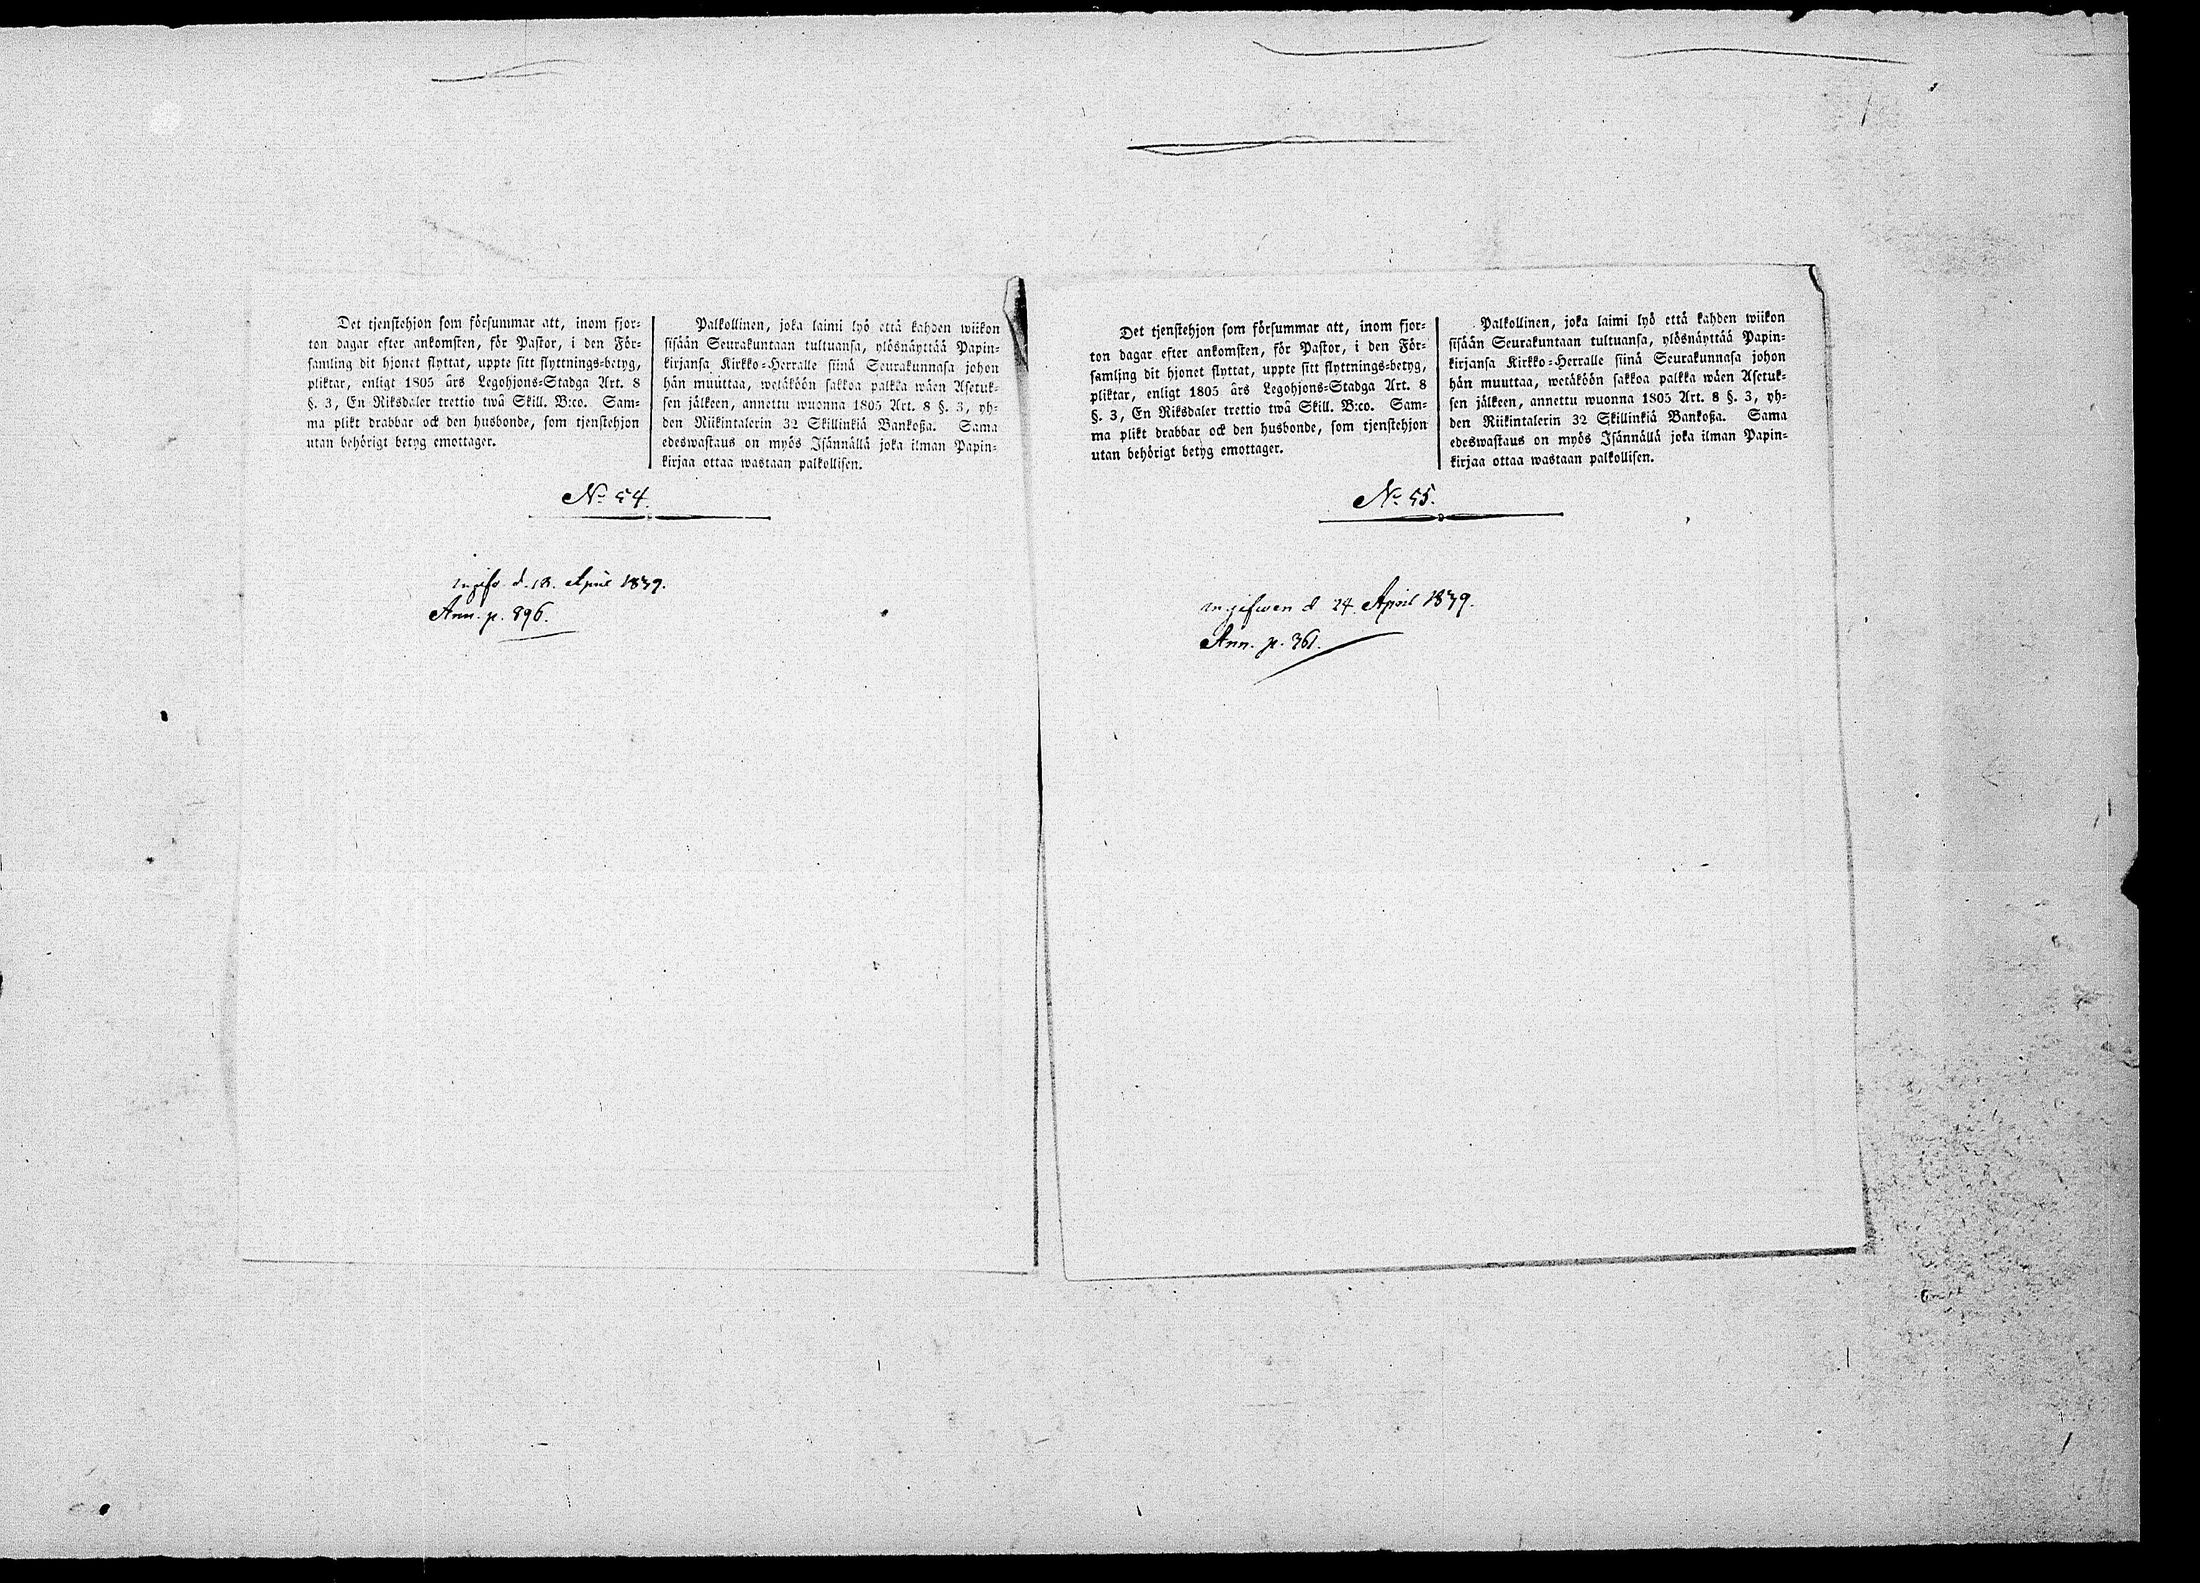 Det tjenstehjon som försummar att, inom fjor-
ton dagar efter ankomsten, för Pastor, i den För-
samling dit hjonet flyttat, uppte sitt flyttnings-betyg,
pliktar, enligt 1805 års Legohjons-Stadga Art. 8
§. 3, En Riksdaler trettio twå Skill. B:co. Sam-
ma plikt drabbar ock den husbonde, som tjenstehjon
utan behörigt betyg emottager.
Palkollinen, joka laimi lyö että kahden wiikon
sisään Seurakuntaan tultuansa, ylösnäyttää Papin-
kirjansa Kirkko-Herralle siinä Seurakunnasa johon
hän muuttaa, wetäköön sakkoa palkka wäen Asetuk-
sen jälkeen, annettu wuonna 1805 Art. 8 §. 3, yh-
den Riikintalerin 32 Skillinkiä Bankoßa. Sama
edeswastaus on myös Isännällä joka ilman Papin-
kirjaa ottaa wastaan palkollisen.
No 54.
ingifv. d. 18. April 1839.
Ann. p. 896.
Det tjenstehjon som försummar att, inom fjor-
ton dagar efter ankomsten, för Pastor, i den För-
samling dit hjonet flyttat, uppte sitt flyttnings-betyg,
pliktar, enligt 1805 års Legohjons-Stadga Art. 8
§. 3, En Riksdaler trettio twå Skill. B:co. Sam-
ma plikt drabbar ock den husbonde, som tjenstehjon
utan behörigt betyg emottager.
Palkollinen, joka laimi lyö että kahden wiikon
sisään Seurakuntaan tultuansa, ylösnäyttää Papin-
kirjansa Kirkko-Herralle siinä Seurakunnasa johon
hän muuttaa, wetäköön sakkoa palkka wäen Asetuk-
sen jälkeen, annettu wuonna 1805 Art. 8 §. 3, yh-
den Riikintalerin 32 Skillinkiä Bankoßa. Sama
edeswastaus on myös Isännällä joka ilman Papin-
kirjaa ottaa wastaan palkollisen.
No 55.
ingifwen d 24. April 1839.
Ann. p. 361.